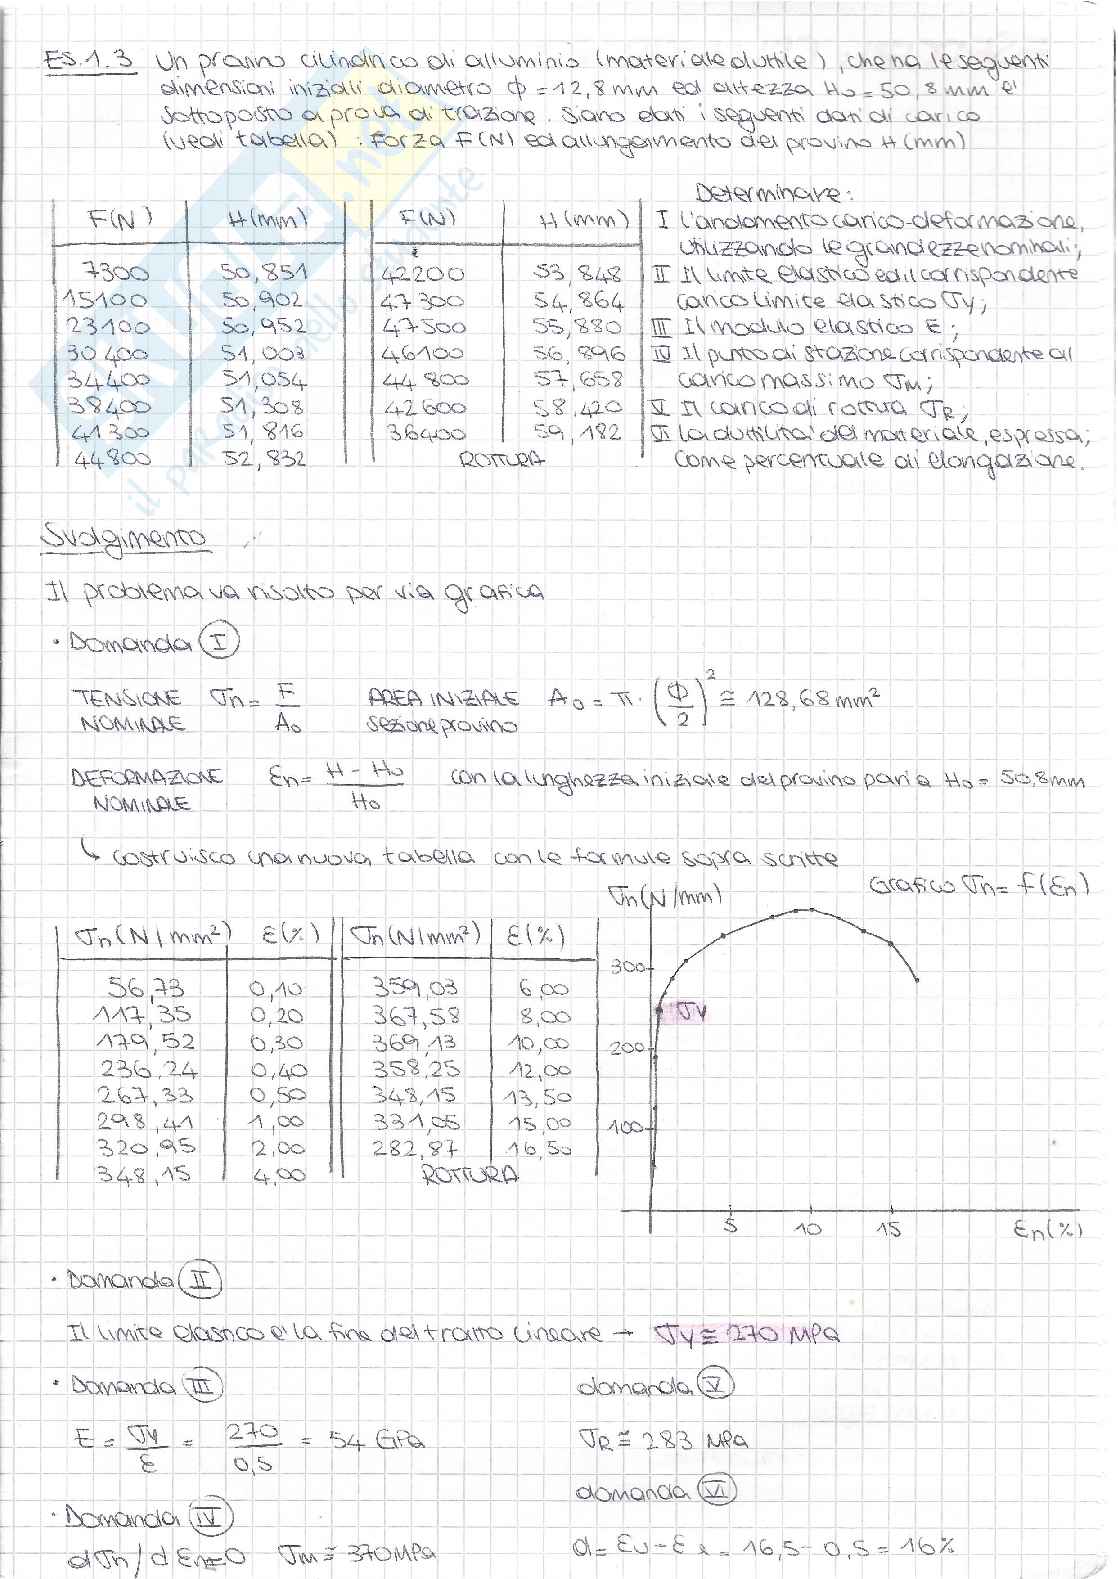 ES. 1.3 Un provino cilindrico di alluminio (materiale duttile), che ha le seguenti
dimensioni iniziali diametro ϕ = 12,8 mm ed altezza H₀ = 50,8 mm e'
sottoposto a prova di trazione. Siano dati i seguenti dati di carico
(vedi tabella) : Forza F(N) ed allungamento del provino H (mm)
F(N) H(mm) F(N) H(mm)
7300 50,851 42200 53,848
15100 50,902 47300 54,864
23100 50,952 47500 55,880
30400 51,003 46100 56,896
34400 51,054 44800 57,658
38400 51,308 42600 58,420
41300 51,816 36400 59,182
44800 52,832 ROTTURA
Determinare:
I l'andamento carico-deformazione,
utilizzando le grandezze nominali;
II Il limite elastico ed il corrispondente
carico limite elastico σy;
III Il modulo elastico E;
IV Il punto di stazione corrispondente al
carico massimo σM;
V Il carico di rottura σR;
VI la duttilita' del materiale, espressa;
come percentuale di elongazione.
Svolgimento
Il problema va risolto per via grafica
• Domanda I
TENSIONE NOMINALE σn = F / A₀ AREA INIZIALE sezione provino A₀ = π · (ϕ/2)² ≅ 128,68 mm²
DEFORMAZIONE NOMINALE εn = H - H₀ / H₀ con la lunghezza iniziale del provino pari a H₀ = 50,8 mm
↳ costruisco una nuova tabella con le formule sopra scritte
σn (N/mm²) ε(%) σn (N/mm²) ε(%)
56,73 0,10 359,03 6,00
117,35 0,20 367,58 8,00
179,52 0,30 369,13 10,00
236,24 0,40 358,25 12,00
267,33 0,50 348,15 13,50
298,41 1,00 331,05 15,00
320,95 2,00 282,87 16,50
348,15 4,00 ROTTURA
σn (N/mm) Grafico σn = f(εn)
300
σy
200
100
5 10 15 εn (%)
• Domanda II
Il limite elastico e' la fine del tratto lineare → σy ≅ 270 MPa
• Domanda III
E = σy / ε = 270 / 0,5 = 54 GPa
• Domanda IV
dσn / dεn = 0 σM ≅ 370 MPa
domanda V
σR ≅ 283 MPa
domanda VI